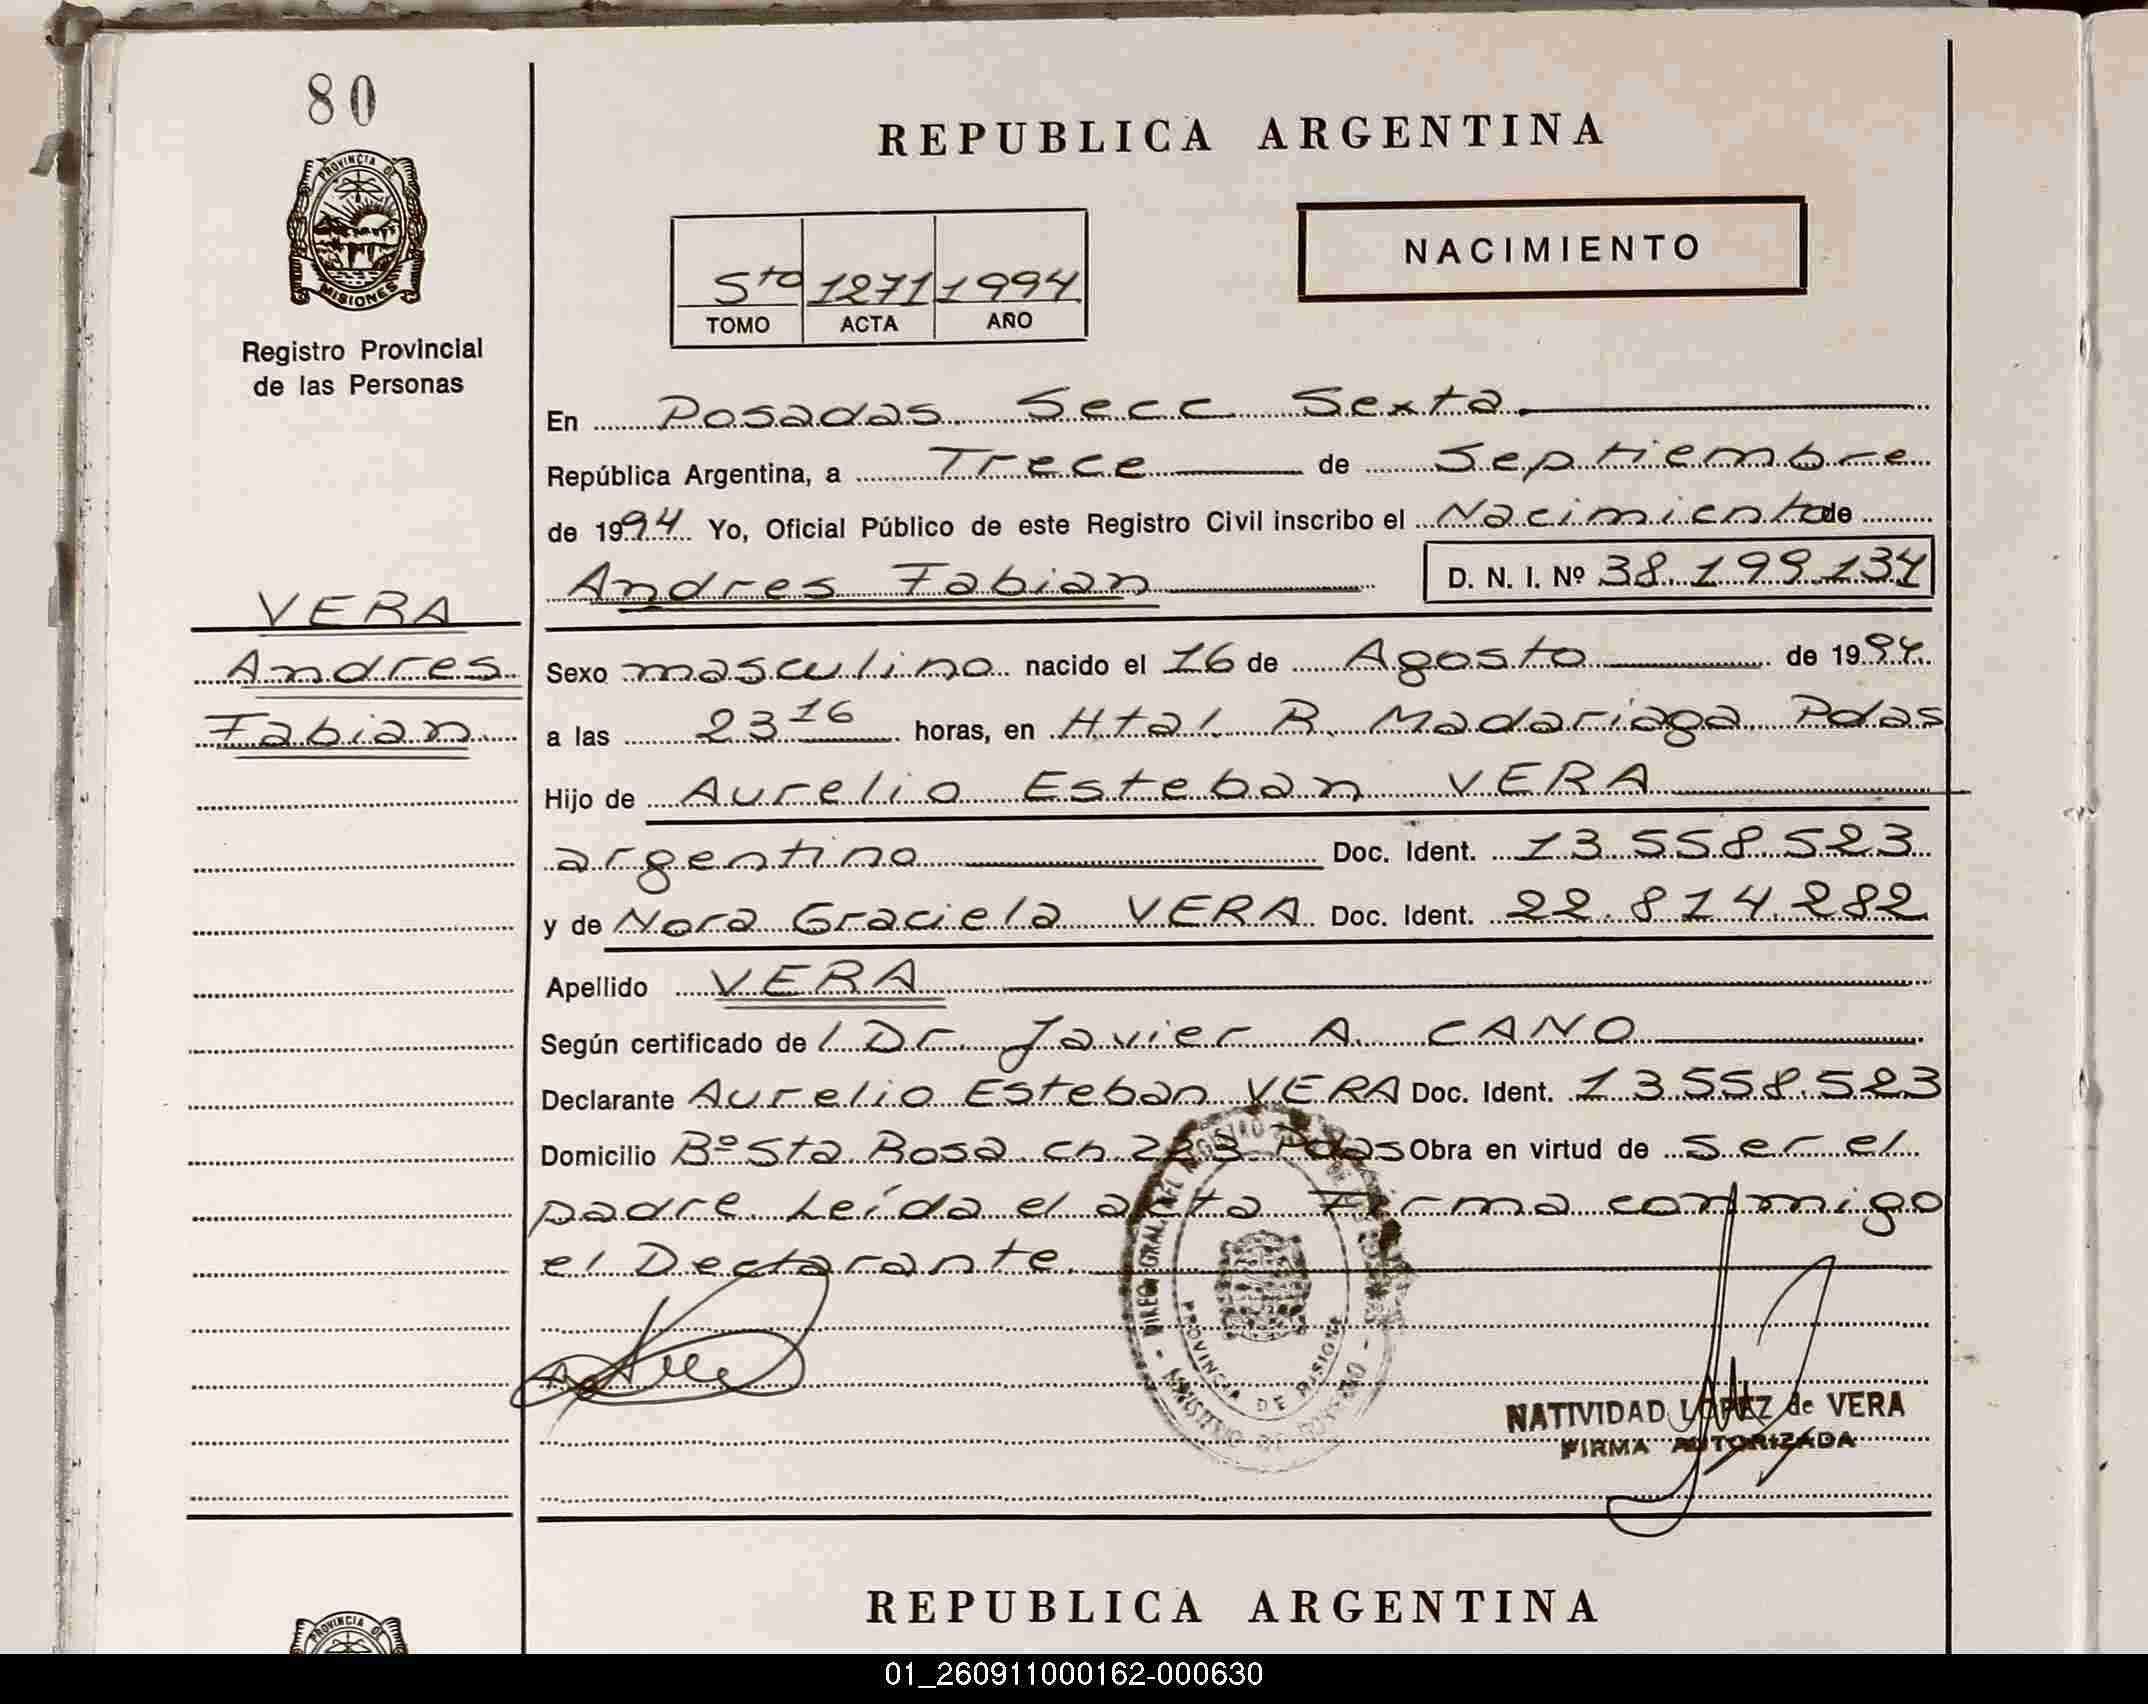 80
PROVINCIA DE
MISIONES
Registro Provincial
de las Personas
REPUBLICA ARGENTINA
NACIMIENTO
5to 1271 1994
TOMO ACTA AÑO
En Posadas Secc Sexta
República Argentina, a Trece de Septiembre
de 1994 Yo, Oficial Público de este Registro Civil inscribo el Nacimiento de
Andres Fabian D. N. I. Nº 38.199.134
VERA
Andres
Fabian
Sexo masculino nacido el 16 de Agosto de 1994.
a las 23 16 horas, en Htal. R. Madariaga Pdas
Hijo de Aurelio Esteban VERA
argentino Doc. Ident. 13.558.523
y de Nora Graciela VERA Doc. Ident. 22.814.282
Apellido VERA
Según certificado de l Dr. Javier A. CANO
Declarante Aurelio Esteban VERA Doc. Ident. 13.558.523
Domicilio Bº Sta Rosa ch 223 Pdas Obra en virtud de ser el
padre. Leída el acta Firma conmigo
el Declarante.
PROVINCIA DE MISIONES
NATIVIDAD LOPEZ de VERA
FIRMA AUTORIZADA
REPUBLICA ARGENTINA
PROVINCIA DE
01_260911000162-000630